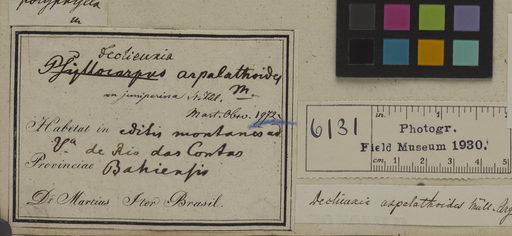 polyphylla
in
Deckeuxia
Physocarpus aspalathoides
M.
an juniperina
Mart. Obs. 1972.
Habitat in editis montanis ad
V.ª de Rio das Contas
Provinciae Bahiensis
Dr Martius Iter Brasil.
6131
in. 1
Photogr.
Field Museum 1930.
cm 1 2 3 4 5
aspalathoides Müll. Arg